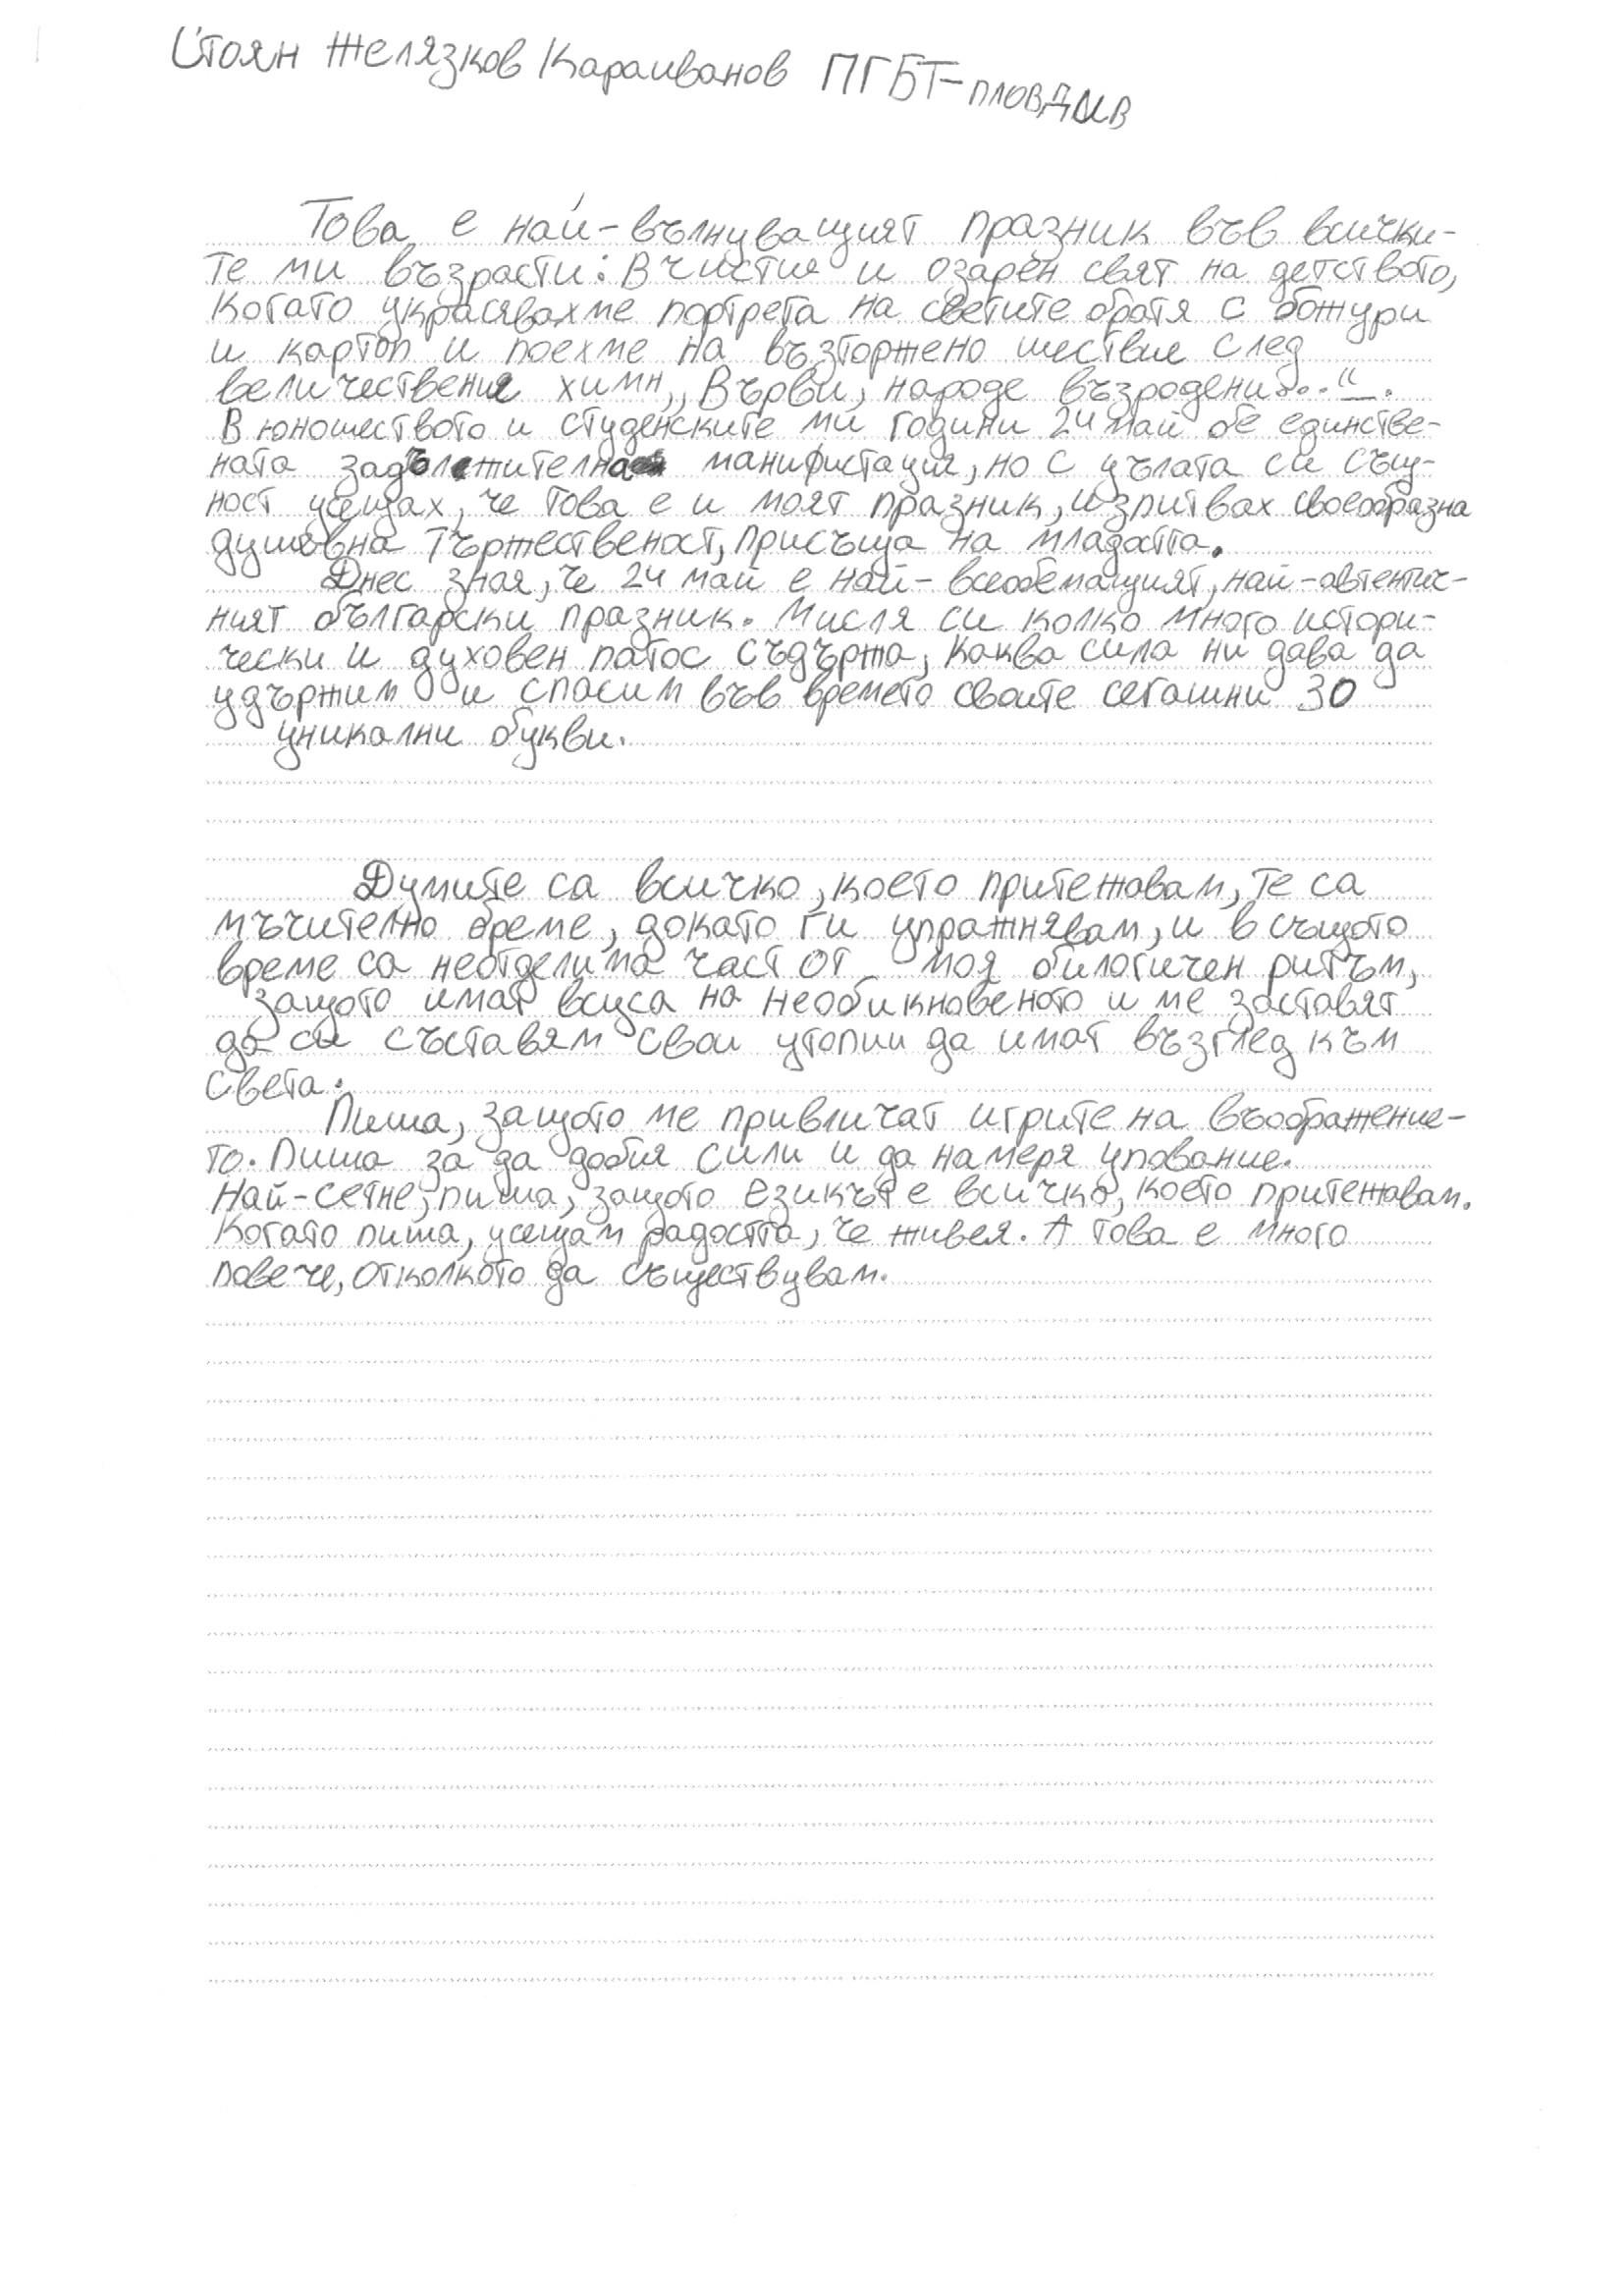 Стоян Желязков Караиванов ПГБТ-пловдив
Това е най-вълнуващият празник във всички-
те ми възрасти: В чистия и озарен свят на детството,
когато украсявахме портрета на светите братя с божури
и картоп и поехме на възторжено шествие след
величествения химн „Върви, народе възродени...“.
В юношеството и студенските ми години 24 май бе единстве-
ната задължителна манифистация, но с цялата си същ-
ност усещах, че това е и моят празник, изпитвах своеобразна
душевна тържественост, присъща на младостта.
Днес зная, че 24 май е най-всеобемащият, най-автентич-
ният български празник. Мисля си колко много истори-
чески и духовен патос съдържа, каква сила ни дава да
удържим и спасим във времето своите сегашни 30
уникални букви.
Думите са всичко, което притежавам, те са
мъчително време, докато ги упражнявам, и в същото
време са неотделима част от моя билогичен ритъм,
защото имат вкуса на необикновеното и ме заставят
да си съставям свои утопии да имат възглед към
света.
Пиша, защото ме привличат игрите на въображение-
то. Пиша за да добия сили и да намеря упование.
Най-сетне, пиша, защото езикът е всичко, което притежавам.
Когато пиша, усещам радостта, че живея. А това е много
повече, отколкото да съществувам.